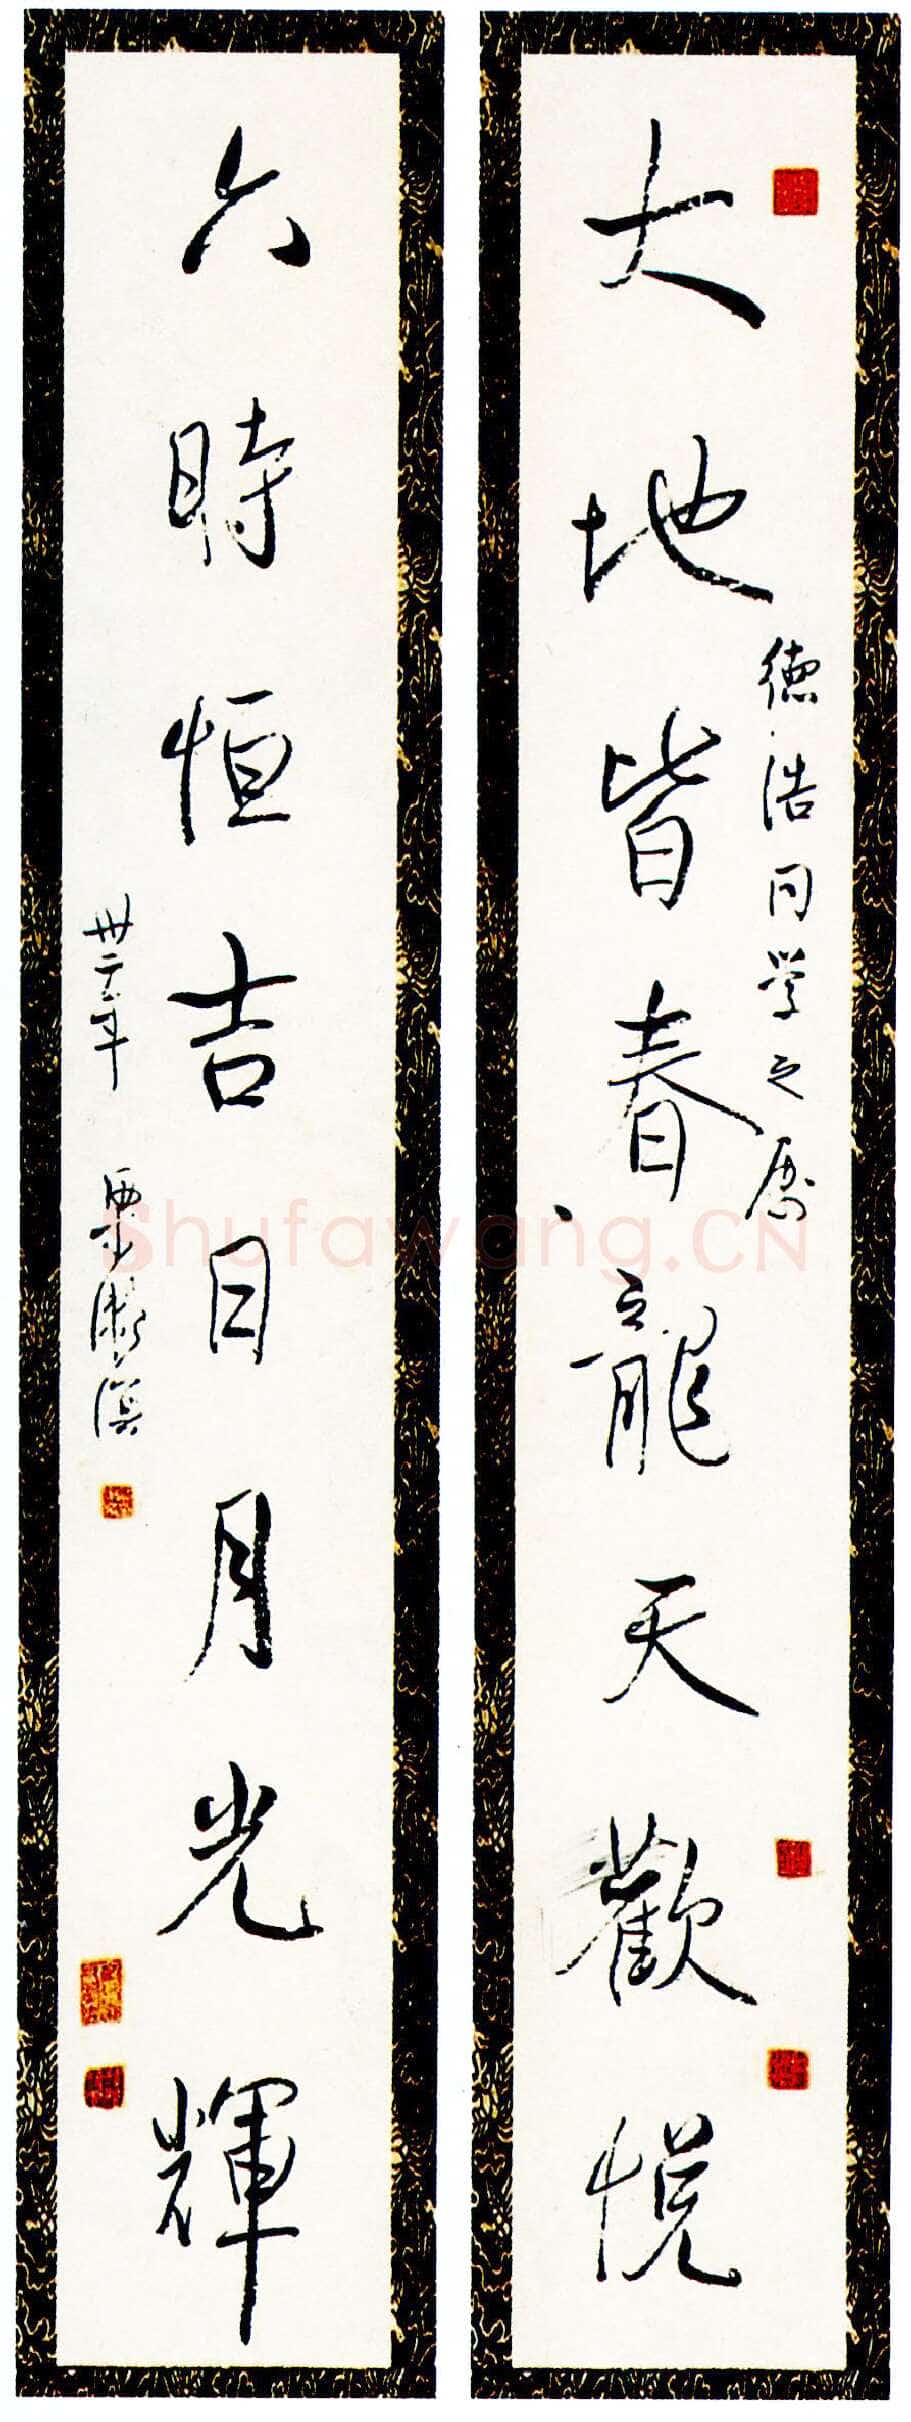 大地皆春龍天歡悅
德浩同学之
六時恒吉日月光輝
卅二年 梁漱溟
Shufawang.CN